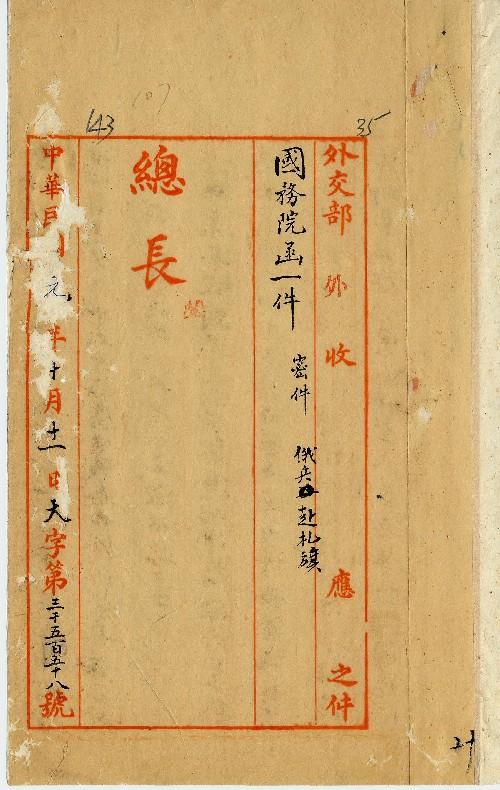 外交部 外 收 應 之件
國務院函一件 密件 俄兵赴札議
總長
中華民國元年十月十一日大字第三千五百五十八號
143
35
21